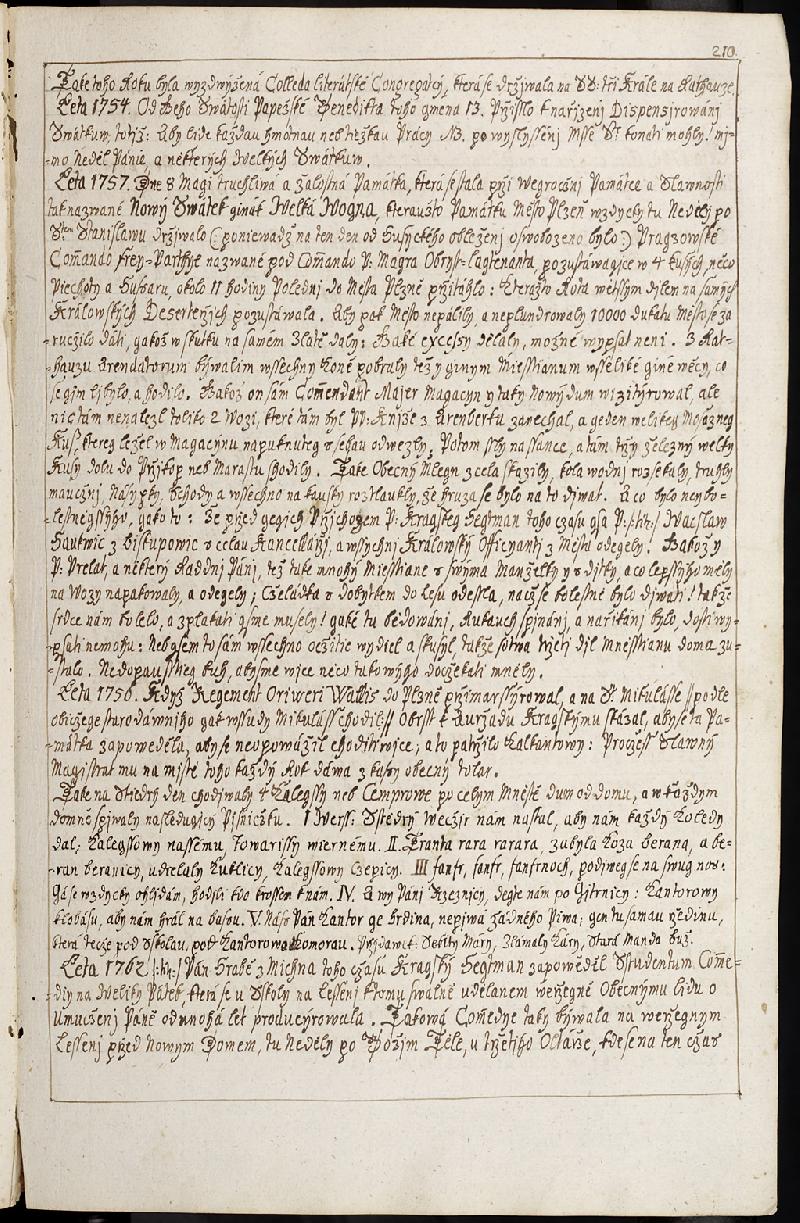 210.
Také toho Roku byla wyzdwyžená Collecta literátské Congregacý, která se držjwala na SS: tři Krále na Rathauze.
Leta 1754. Od Geho Swátosti Papežské Benedikta toho gmena 13. Pržisslo k nařjzenj Dispensjrowánj
Swátkum, totiž: Aby lidé každau hmotnau neb těžkau Prácy NB. po wyslyssenj Msse St: konati mohly! mj-
-mo Neděl Páně, a některých Welkých Swátkum.
Leta 1757. Dne 8 Magi truchliwá a žalostná Památka, která se stala při Wegročnj Památce a Slawnosti
tak nazwané Nowý Swátek ginák Welká Wogna, kteraužto Památku Město Plzeň wzdycky tu Neděly po
Stém Stanislawu držjwalo (: poniewadž na ten den od Husyckého obleženj oswobozeno bylo :) Prayzowské
Comando Frey-Parthye nazwané pod Comando P: Magra Obryst-Lagtenanta, pozustáwagjce w 4 kusých, něco
Piechoty a Husaru, okolo 11 hodiny Polednj do Města Plzně přitáhlo: Kterážto Rota wětssým djlem na samých
Králowských Deserterjch pozustáwala. Aby pak Město nepálily, a neplundrowaly 10000 dukátu Město se za-
ručžilo dáti, gakož w skutku na samém Zlatě daly: Jaké excessy dělaly, možné wypsat neni. Z Rat-
hauzu Arendatorum bywalim wssechny koně pobraly též y ginym Miesstianum wsseliké giné wěcy, co
se gim ljbylo, a hodilo. Jakož on sám Comendant Majer Magacyn y taky Nowý dum wizitýrowal, ale
nic tám nenalezl toliko 2 Wozi, které tám byl PP: Knjže z Arenberku zanechal, a geden weliký Mosazneg
Kus, ktereg ležel w Magacýnu napuknuteg s sebau odwezly; Potom ssly na ssance, a tám trzy železný welky
Kusy dolu do Přjkop neb Marastu shodily. Také Obecný Mlegn zcela skazily, kola wodnj rozsekaly, truhly
maučznj, Násypky, Schody a wssechno na kausky roztlaukly, že hruza se bylo na to djwat. A co bylo neybo-
-lestněgssýho, gako to: Že před gegich Přjchozem P: Kragskeg Hegtman toho času gsa P: /: tit: / Wacslaw
Hautwic z Biskupowic s celau Kancellářj, a wssychni Králowský Officyanti z Města odegely! Jakož y
P: Prelat, a některý Raddnj Pánj, též také mnohý Miesstiané s swýma Manželky y s djtky, a co lepssýho měly
na Wozy napakowaly, a odegely; Czeládka s dobytkem do Lesu odessla, naicž se bolestně bylo djwati! takže
srdce nám bolelo, a zplakati gsme musely! gaké tu bědowánj, Rukauch spjnánj, a nařikánj bylo, dosti wy-
psati nemohu: Neb gsem to sám wssechno očžitě wyděl a skusyl, takže sotwa třžetj djl Mněsstianu doma zu-
-stalo. Nedopausstieg Buh, abysme wjce něco takowýho dočžekati mněly.
Leta 1756. Když Regement Oriweri Wallis do Plzně přimarssýrowal, a na S: Mikulásse podle
obyčžege starodáwnjho gak wssudy MikulásS chodil; Obrsst k Auržadu Kragskýmu skázal, aby se ta Pa-
-mátka zapowěděla, aby se neopowážil choditi wjce; a to patřilo Kalkantowy: Procžess Slawný
Magistrat mu na mjstě toho každý Rok dáwá z kasy obecný tolar.
Také na Sstědrý den chodjwaly 4 Kalegssý neb Cemprowé po celym Mněstě dum od domu, a w každym
domně spjwaly nasledugjcý Pjsničzku. I Werss: Sstědrý Wečžjr nám nastal, aby nám každý Koledy
dal; Kalegssowý nassému, Towaryssy wiernému. II. Tranta rara rarara, zubyla Koza berana, a be-
ran beranicy, udělaly Kublicy, Kalegssowy Czepicy. III fanfr, fanfr, fanfrnoch, podjweg se na swug nos:
Gá se wzdycky ohljdám, hodili kdo krossem k nám. IV. A wy Pánj Rzezničy, degte nám po Gitrnicy: Kantorowy
klobásu, aby nám hrál na basu. V. Náss Pan Kantor ge hrdina, nepjwá žádného Piwa; gen tu samau ržedinu,
která teče pod Sskolau, pod Kantorowau komorau. Přjdawek: Sedlký Máry, Zlámalý Káry, Stará Manda Buž.
Leta 1762 /: tit: / Pán Hrabě z Michna toho času Kragský Hegtman zapowěděl Studentum Come-
dij na Weliký Pátek, která se u Sskoly na Lessenj k tomu swálně udělanem weržegně Obecnýmu lidu o
Umučenj Páně od mnoha let producýrowala. Takowá Comedye taky bjwala na weržegnym
Lessenj před Nowym Domem, tu Neděly po Božjm Těle, u tržetjho Oltářže, kde se na ten čžas